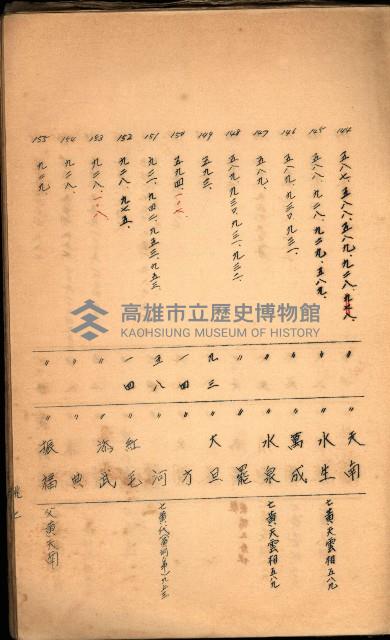 144 五八七、五八八、五八九、九二八、九七八、 〃 〃 天南
145 五八八、九二八、九二九、五八九、 〃 〃 水生 亡黃天雲相五八九
146 五八九、九三〇、九三一、 〃 〃 萬成
147 五八九、 〃 〃 水泉 亡黃天雲相五八九
148 五八九、九三〇、九三一、九三二、 〃 〃 罷
149 五九三、 九三 〃 大旦
150 五九四、一〇七、 一四 〃 方
151 九二一、九四二、九五三、九五三、 五八 〃 河
152 九二八、九七五、 一四 〃 紅毛
153 九二八、一〇八 〃 〃 添武
154 九二八、 〃 〃 典
155 九二九、 〃 〃 振福 父黃天南
高雄市立歷史博物館
KAOHSIUNG MUSEUM OF HISTORY